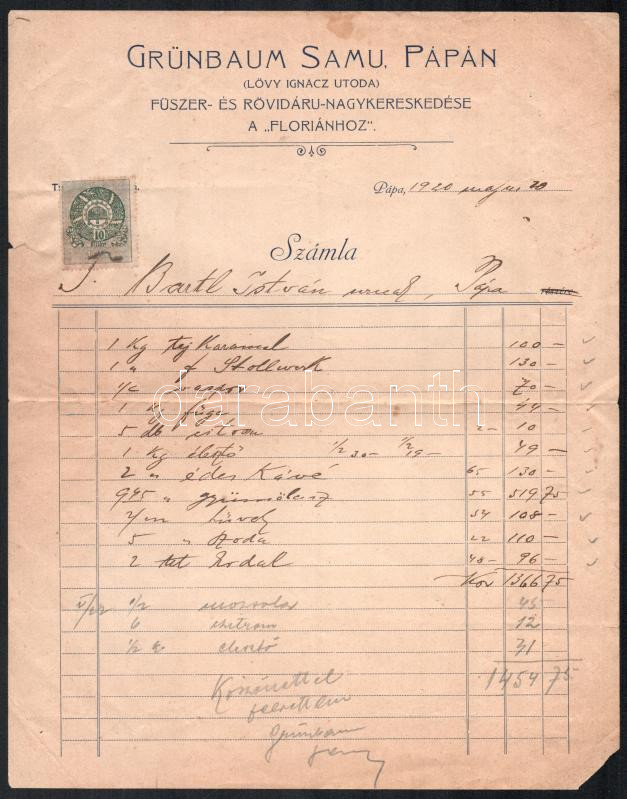 GRÜNBAUM SAMU, PÁPÁN
(LÖVY IGNÁCZ UTODA)
FÜSZER- ÉS RÖVIDÁRU-NAGYKERESKEDÉSE
A „FLORIÁNHOZ".
Pápa, 1920 május 20
10
Számla
T. Bartl István urnak, Pápa
1 Kg tej Karamel 100 —
1 „ Stollwerk 130 —
70 —
1 füge 44 —
5 db citrom 2 - 10
1 Kg élesztő 1/2 30 - 1/2 19 - 49 —
2 „ édes Kávé 65 130 —
945 „ gyümölcsíz 55 519 75
2/m 54 108 —
5 „ Szoda 22 110 —
2 48 - 96 —
Kor 1366 75
V/22 1/2 45
6 citrom 12
1/2 élesztő 31
1454 75
Köszönettel
felvettem
Grünbaum
darabanth